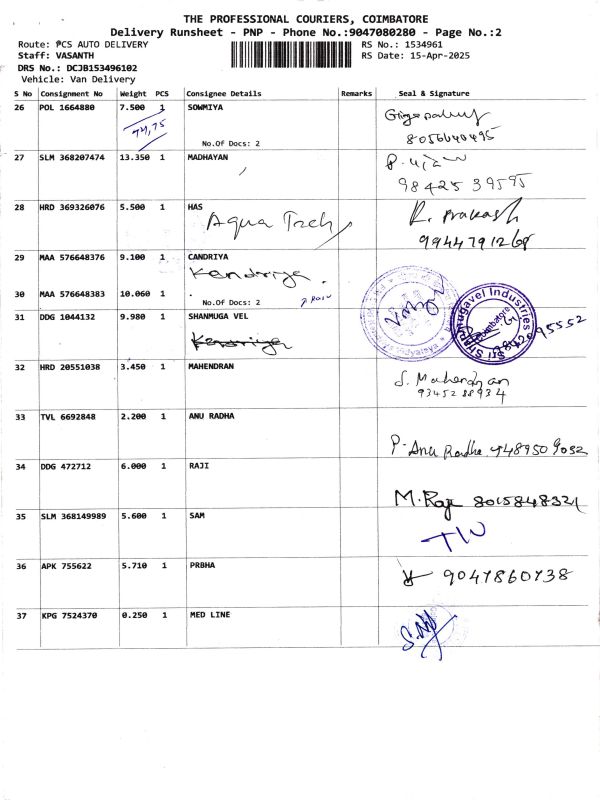 THE PROFESSIONAL COURIERS, COIMBATORE
Delivery Runsheet - PNP - Phone No.:9047080280 - Page No.:2
Route: PCS AUTO DELIVERY RS No.: 1534961
Staff: VASANTH RS Date: 15-Apr-2025
DRS No.: DCJB153496102
Vehicle: Van Delivery
S No Consignment No Weight PCS Consignee Details Remarks Seal & Signature
26 POL 1664880 7.500 1 SOWMIYA
74,75
8056640495
No.Of Docs: 2
27 SLM 368207474 13.350 1 MADHAYAN
98425 39595
28 HRD 369326076 5.500 1 HAS R. Prakash
Aqua Tech
9944791268
29 MAA 576648376 9.100 1 CANDRIYA
Kendriya.
30 MAA 576648383 10.060 1 .
No.Of Docs: 2
31 DDG 1044132 9.980 1 SHANMUGA VEL
Kendriya
Shanmugavel Industries
Coimbatore
32 HRD 20551038 3.450 1 MAHENDRAN
S. Mahendran
9345288934
33 TVL 6692848 2.200 1 ANU RADHA
P. Anu Radha. 9489509052
34 DDG 472712 6.000 1 RAJI
M. Raji 8015848321
35 SLM 368149989 5.600 1 SAM
36 APK 755622 5.710 1 PRBHA
9047860738
37 KPG 7524370 0.250 1 MED LINE